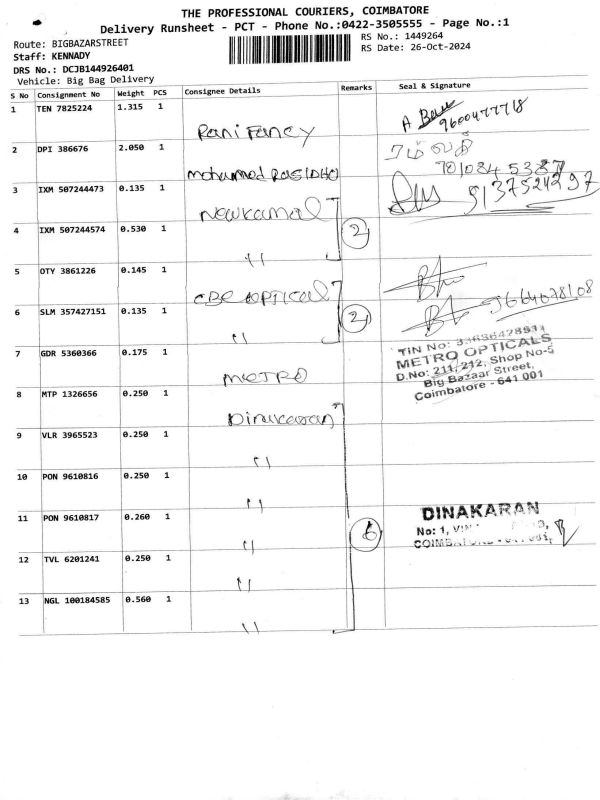 THE PROFESSIONAL COURIERS, COIMBATORE
Delivery Runsheet - PCT - Phone No.:0422-3505555 - Page No.:1
Route: BIGBAZARSTREET
Staff: KENNADY
DRS No.: DCJB144926401
Vehicle: Big Bag Delivery
RS No.: 1449264
RS Date: 26-Oct-2024
S No Consignment No Weight PCS Consignee Details Remarks Seal & Signature
1 TEN 7825224 1.315 1 Rani Fancy A 9600477718
2 DPI 386676 2.050 1 mohammed
3 IXM 507244473 0.135 1 Newkamal
4 IXM 507244574 0.530 1 " 2
5 OTY 3861226 0.145 1 CBE OPTICAL
6 SLM 357427151 0.135 1 " 2 9664078108
7 GDR 5360366 0.175 1 METRO
TIN No:
METRO OPTICALS
D.No: 211, 212, Shop No-5
Big Bazaar Street,
Coimbatore - 641 001
8 MTP 1326656 0.250 1 Dinakaran
9 VLR 3965523 0.250 1 "
10 PON 9610816 0.250 1 "
11 PON 9610817 0.260 1 " 6
DINAKARAN
No: 1,
12 TVL 6201241 0.250 1 "
13 NGL 100184585 0.560 1 "